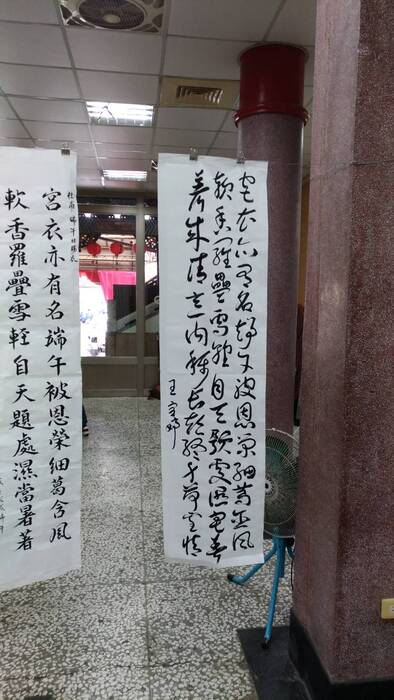 宮衣亦有名端午被恩榮細葛含風
軟香羅疊雪輕自天題處濕當暑
著來清意內稱長短終身荷聖情
杜甫 端午日賜衣
宮衣亦有名端午被恩榮細葛含風
軟香羅疊雪輕自天題處濕當暑著